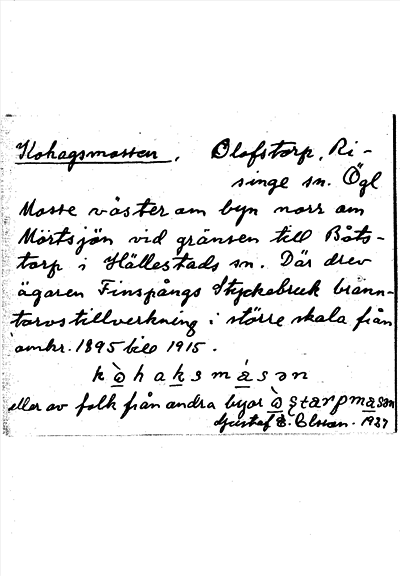 Kohagsmossen. Olofstorp, Ri-
singe sn. Ögl
Mosse väster om byn norr om
Mörtsjön vid gränsen till Båts-
torp i Hällestads sn. Där drev
ägaren Finspångs Styckebruk bränn-
torvstillverkning i större skala från
omkr. 1895 till 1915.
kòhaksmásən
eller av folk från andra byar
Gustaf E. Olsson. 1927